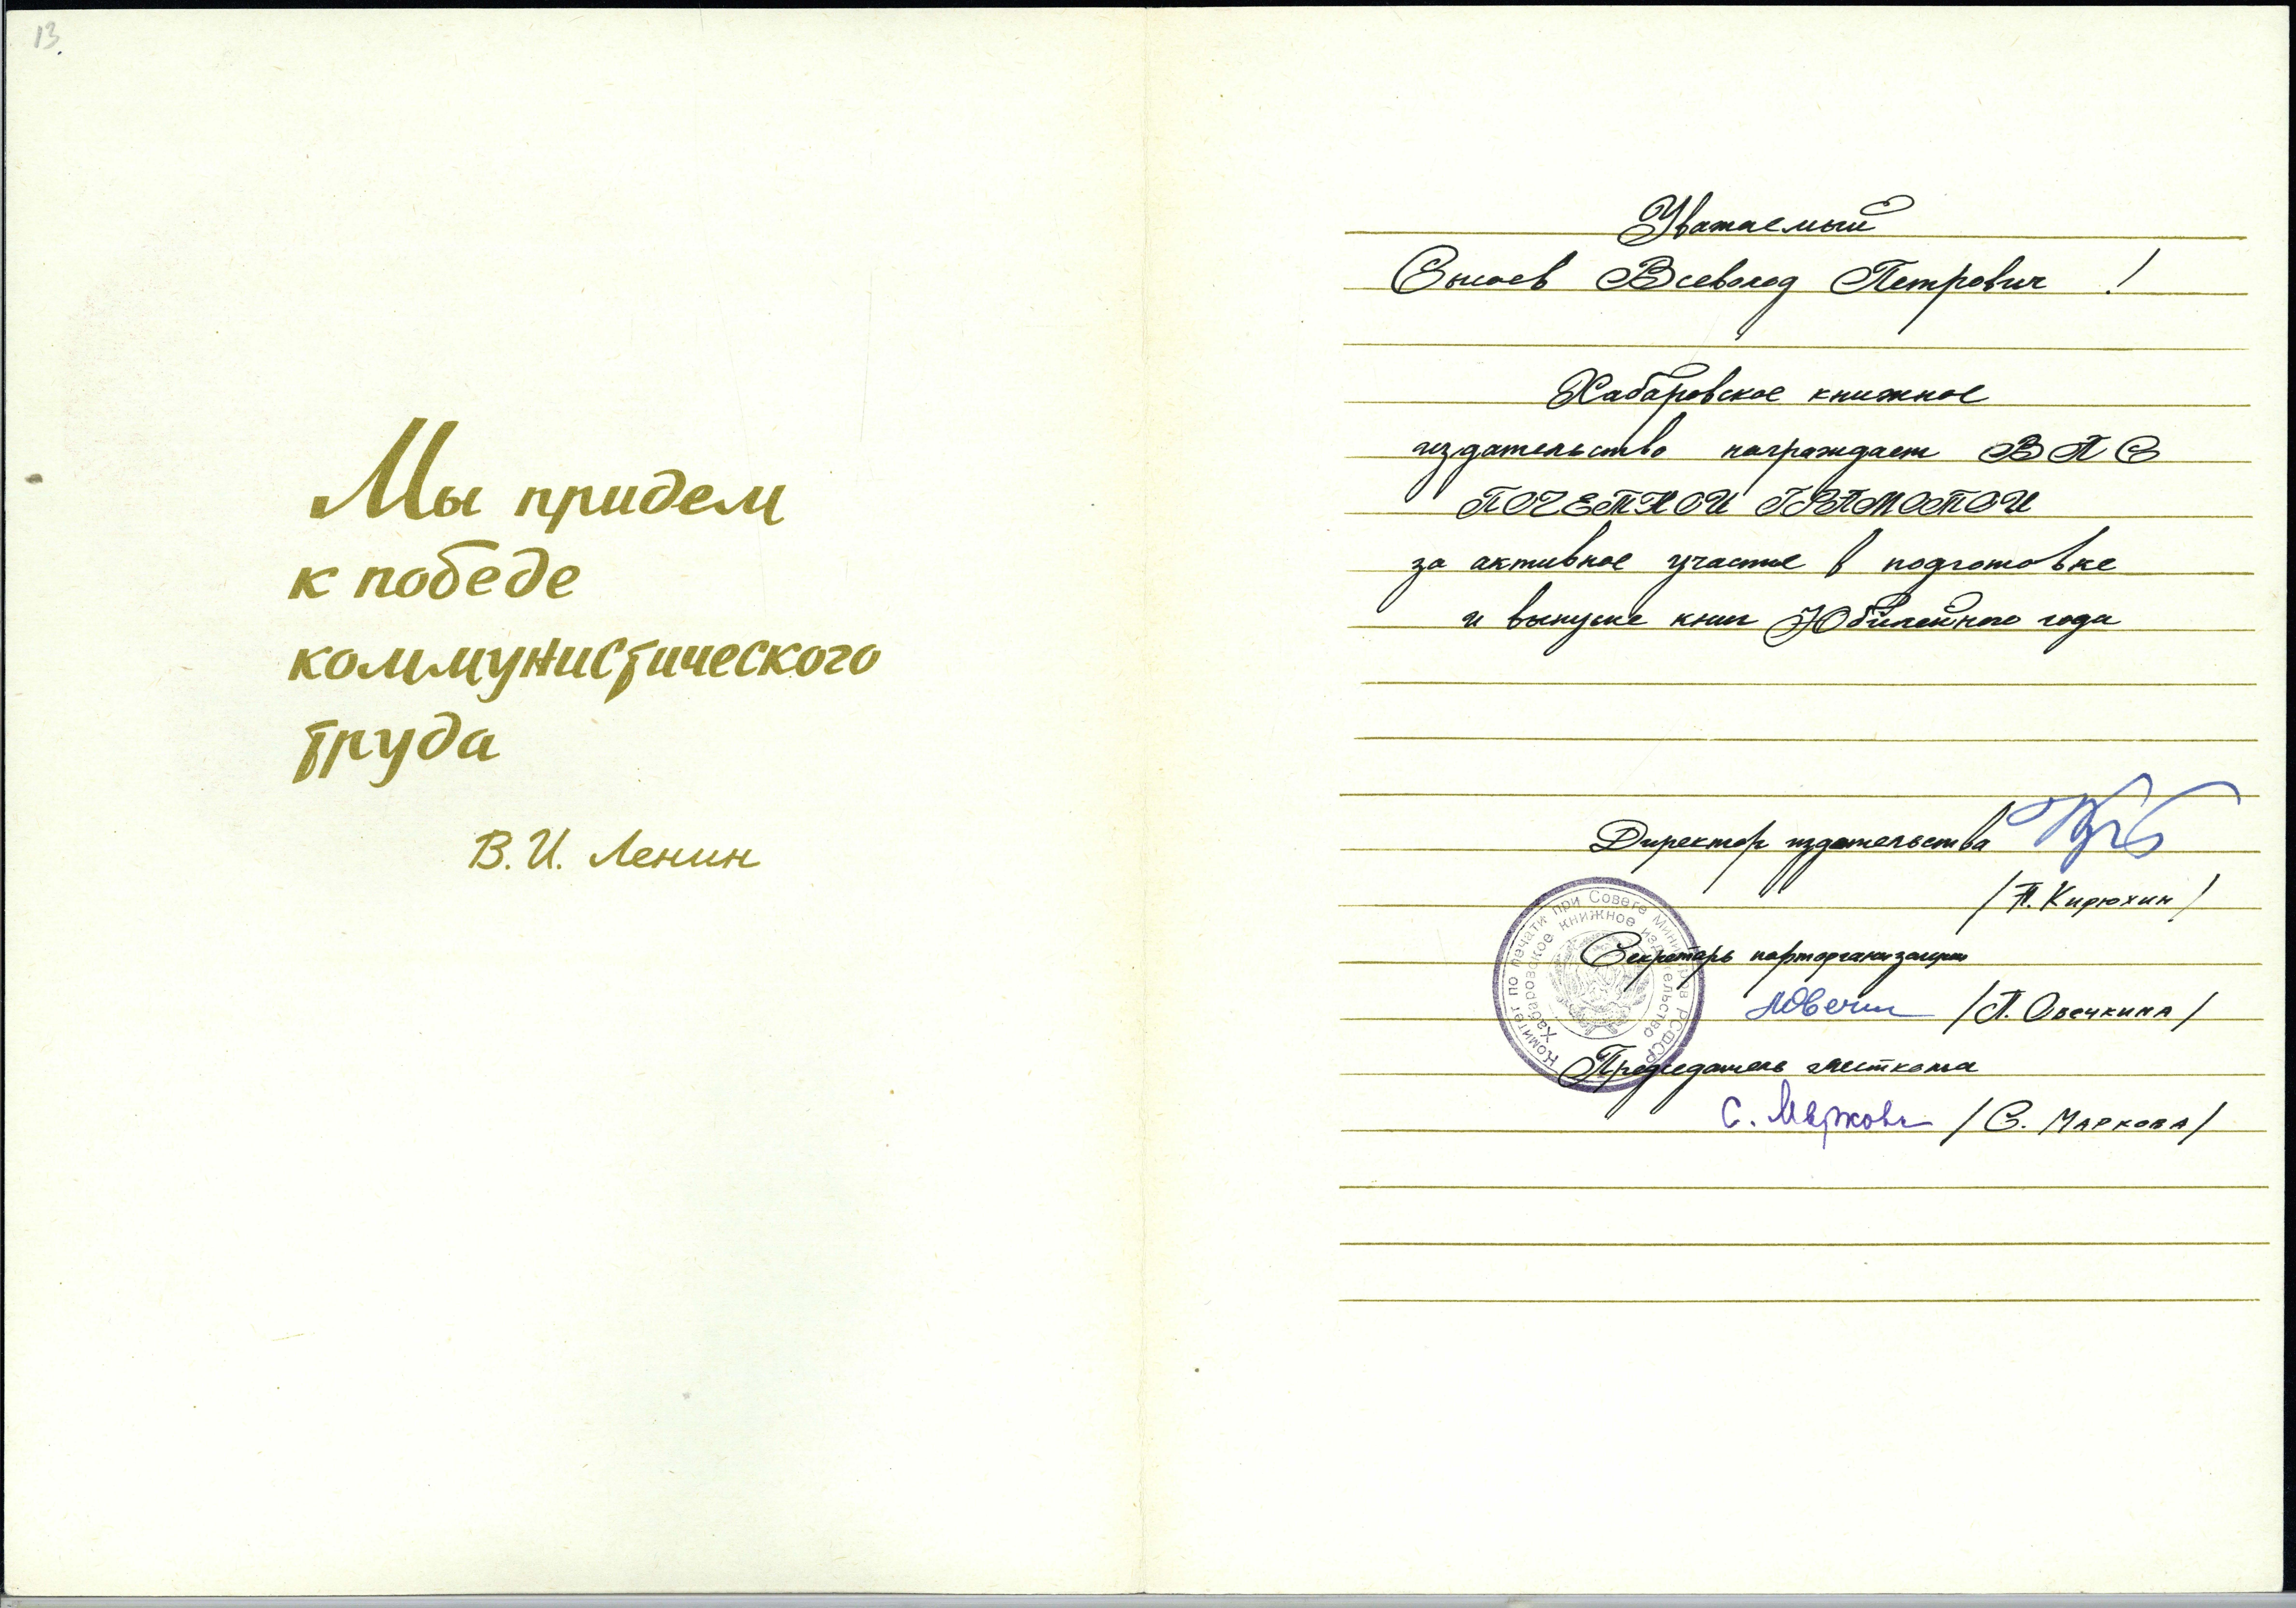 13
Мы придем
к победе
коммунистического
труда
В. И. Ленин
Уважаемый
Сысоев Всеволод Петрович !
Хабаровское книжное
издательство награждает ВАС
ПОЧЕТНОЙ ГРАМОТОЙ
за активное участие в подготовке
и выпуске книг Юбилейного года
Директор издательства
/ Н. Кирюхин /
Секретарь парторганизации
/ Л. Овечкина /
Председатель месткома
С. Маркова / С. МАРКОВА /
Комитет по печати при Совете Министров РСФСР
Хабаровское книжное издательство